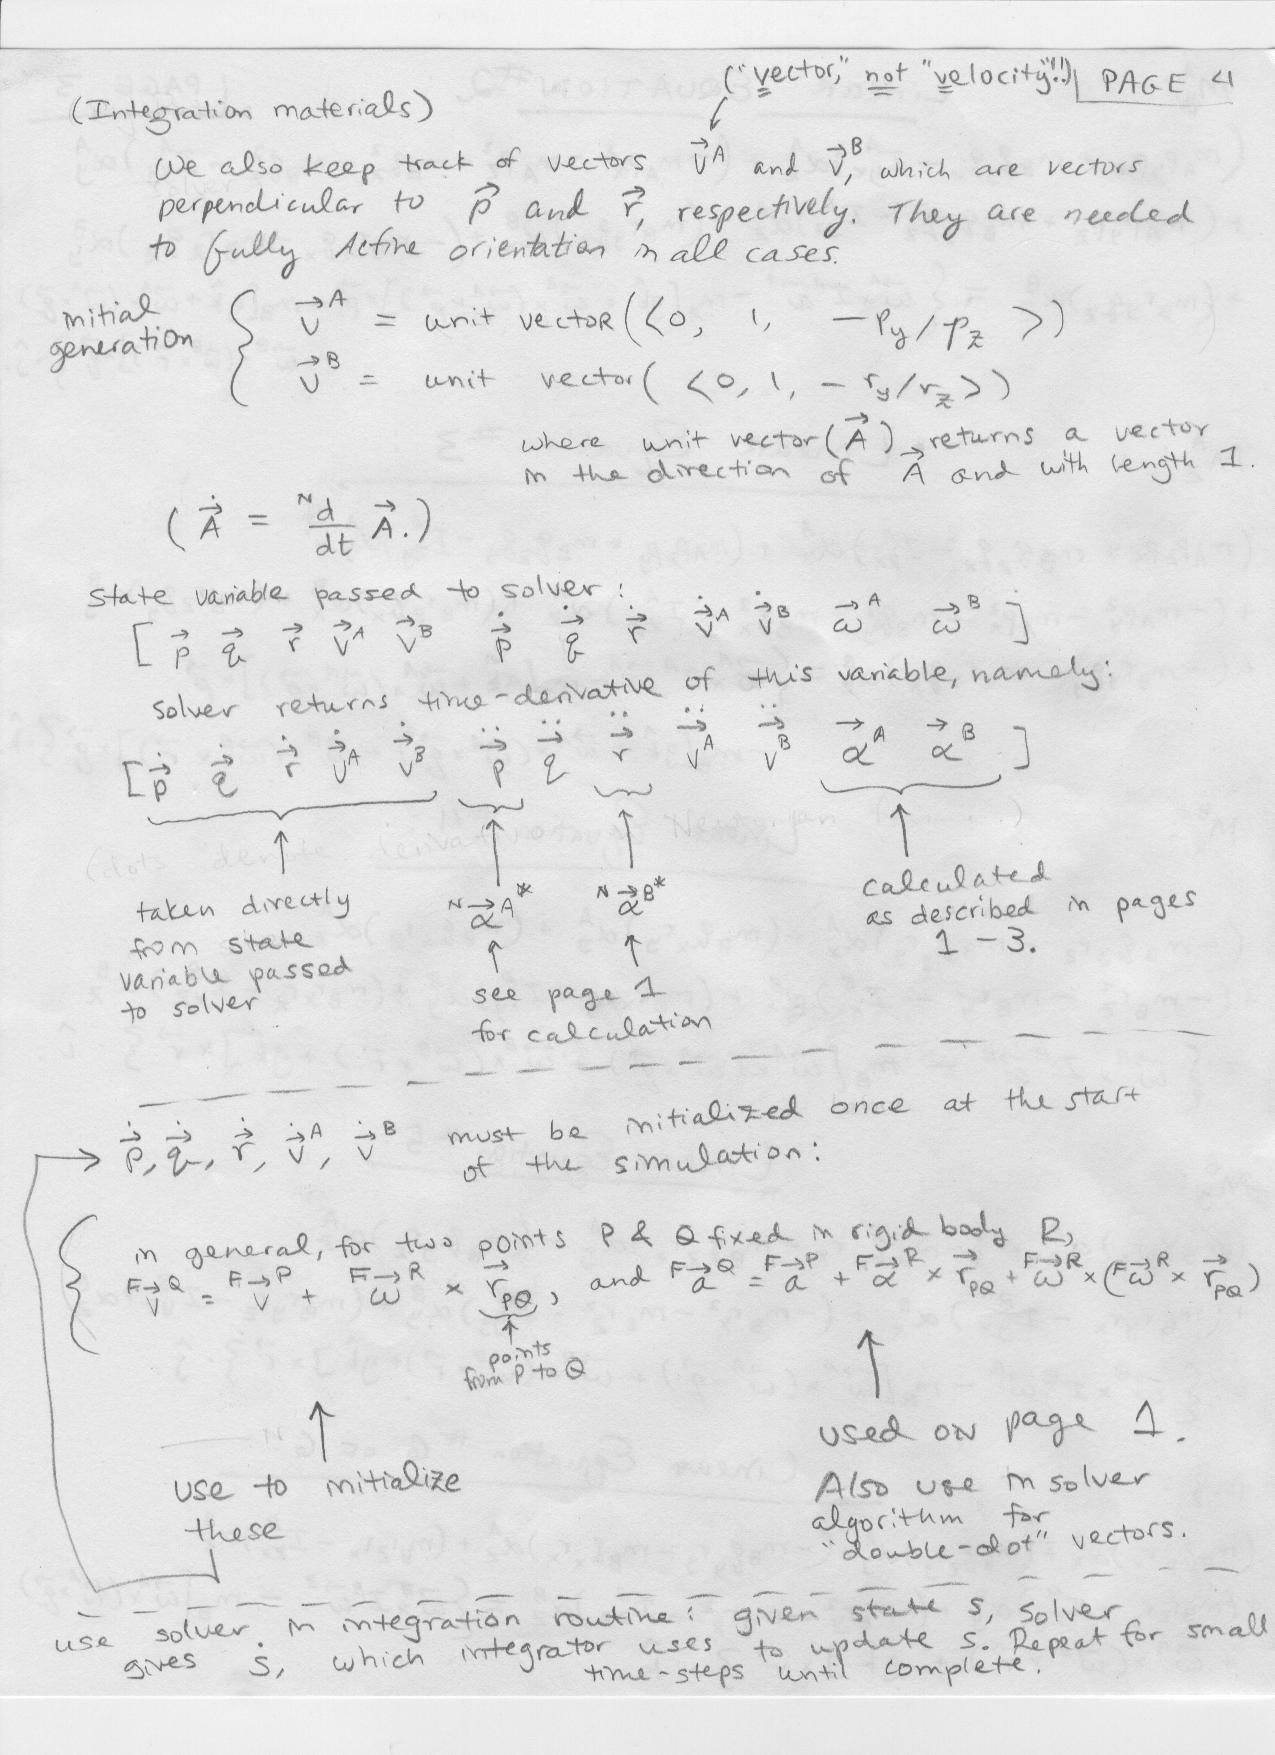 ("vector," not "velocity"!!) PAGE 4
(Integration materials)
We also keep track of vectors v⃗ᴬ and v⃗ᴮ, which are vectors
perpendicular to p⃗ and r⃗, respectively. They are needed
to fully define orientation in all cases.
initial
generation
v⃗ᴬ = unit vector(<0, 1, -p_y/p_z>)
v⃗ᴮ = unit vector(<0, 1, -r_y/r_z>)
where unit vector(A⃗) returns a vector
in the direction of A⃗ and with length 1.
(A⃗̇ = ᴺd/dt A⃗.)
State variable passed to solver:
[p⃗ q⃗ r⃗ v⃗ᴬ v⃗ᴮ p⃗̇ q⃗̇ r⃗̇ v⃗̇ᴬ v⃗̇ᴮ ω⃗ᴬ ω⃗ᴮ]
solver returns time-derivative of this variable, namely:
[p⃗̇ q⃗̇ r⃗̇ v⃗̇ᴬ v⃗̇ᴮ p⃗̈ q⃗̈ r⃗̈ v⃗̈ᴬ v⃗̈ᴮ α⃗ᴬ α⃗ᴮ]
taken directly
from state
variable passed
to solver
ᴺα⃗ᴬ* ᴺα⃗ᴮ*
see page 1
for calculation
calculated
as described in pages
1-3.
p⃗̇, q⃗̇, r⃗̇, v⃗̇ᴬ, v⃗̇ᴮ must be initialized once at the start
of the simulation:
in general, for two points P & Q fixed in rigid body R,
ꟳv⃗^Q = ꟳv⃗ᴾ + ꟳω⃗ᴿ × r⃗_PQ, and ꟳa⃗^Q = ꟳa⃗ᴾ + ꟳα⃗ᴿ × r⃗_PQ + ꟳω⃗ᴿ × (ꟳω⃗ᴿ × r⃗_PQ)
points
from P to Q
use to initialize
these
used on page 1.
Also use in solver
algorithm for
"double-dot" vectors.
use solver in integration routine: given state s, solver
gives ṡ, which integrator uses to update s. Repeat for small
time-steps until complete.